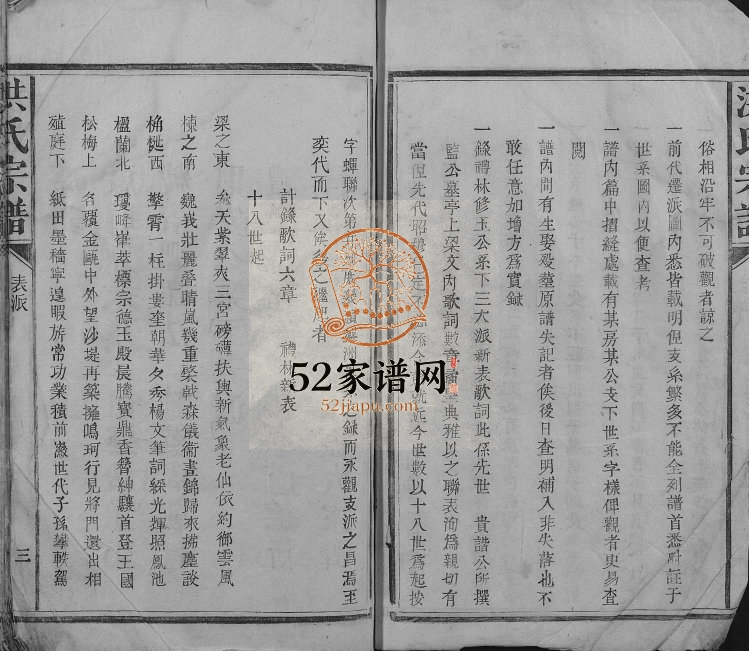 俗相沿牢不可破觀者諒之
一前代遷派圖內悉皆載明但支系繁多不能全列譜首悉註于
世系圖內以便查考
一譜內篇中摺縫處載有某房某公支下世系字樣俾觀者更易查
閱
一譜內間有生娶殁塟原譜失記者俟後日查明補入非失落也不
敢任意加增方爲實錄
一錄禮林修玉公系下三大派新表歌詞此係先世 貴諧公所撰
監公墓亭上梁文內歌詞數章 典雅以之聯表洵爲親切有
當復先代昭 就近今世數以十八世爲起按
字蟬聯次第 之錄而永觀支派之昌焉至
奕代而下又俟 之繼 者
計錄歌詞六章 禮林新表
十八世起
梁之東 天紫翠爽三宮磅礴扶輿新氣象老仙依約御雲風
棟之南 巍我壯麗叠晴嵐幾重棨戟森儀衛晝錦歸來拂塵談
桷榐西 擎霄一柱掛婁奎朝華夕秀楊文筆詞綵光輝照鳳池
楹蘭北 瓊峰崒萃標宗德玉殿晨騰寶鼎香簪紳驤首登王國
松梅上 名覆金甌中外望沙堤再築擁鳴珂行見將門還出相
殖庭下 紙田墨樯寧遑暇旂常功業積前 世代子孫攀軼駕
洪氏宗譜
表派
三
洪氏宗譜
52家谱网
52jiapu.com